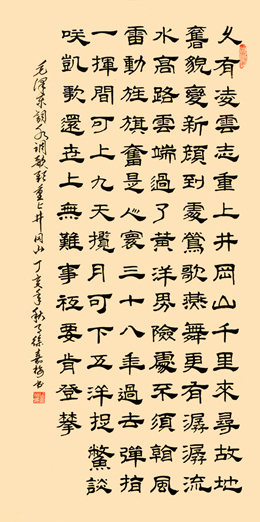 久有凌雲志重上井岡山千里來尋故地
舊貌變新顏到處鶯歌燕舞更有潺潺流
水高路雲端過了黃洋界險處不須看風
雷動旌旗奮是人寰三十八年過去彈指
一揮間可上九天攬月可下五洋捉鱉談
咲凱歌還世上無難事祗要肯登攀
毛澤東詞水調歌頭重上井岡山丁亥年秋月徐